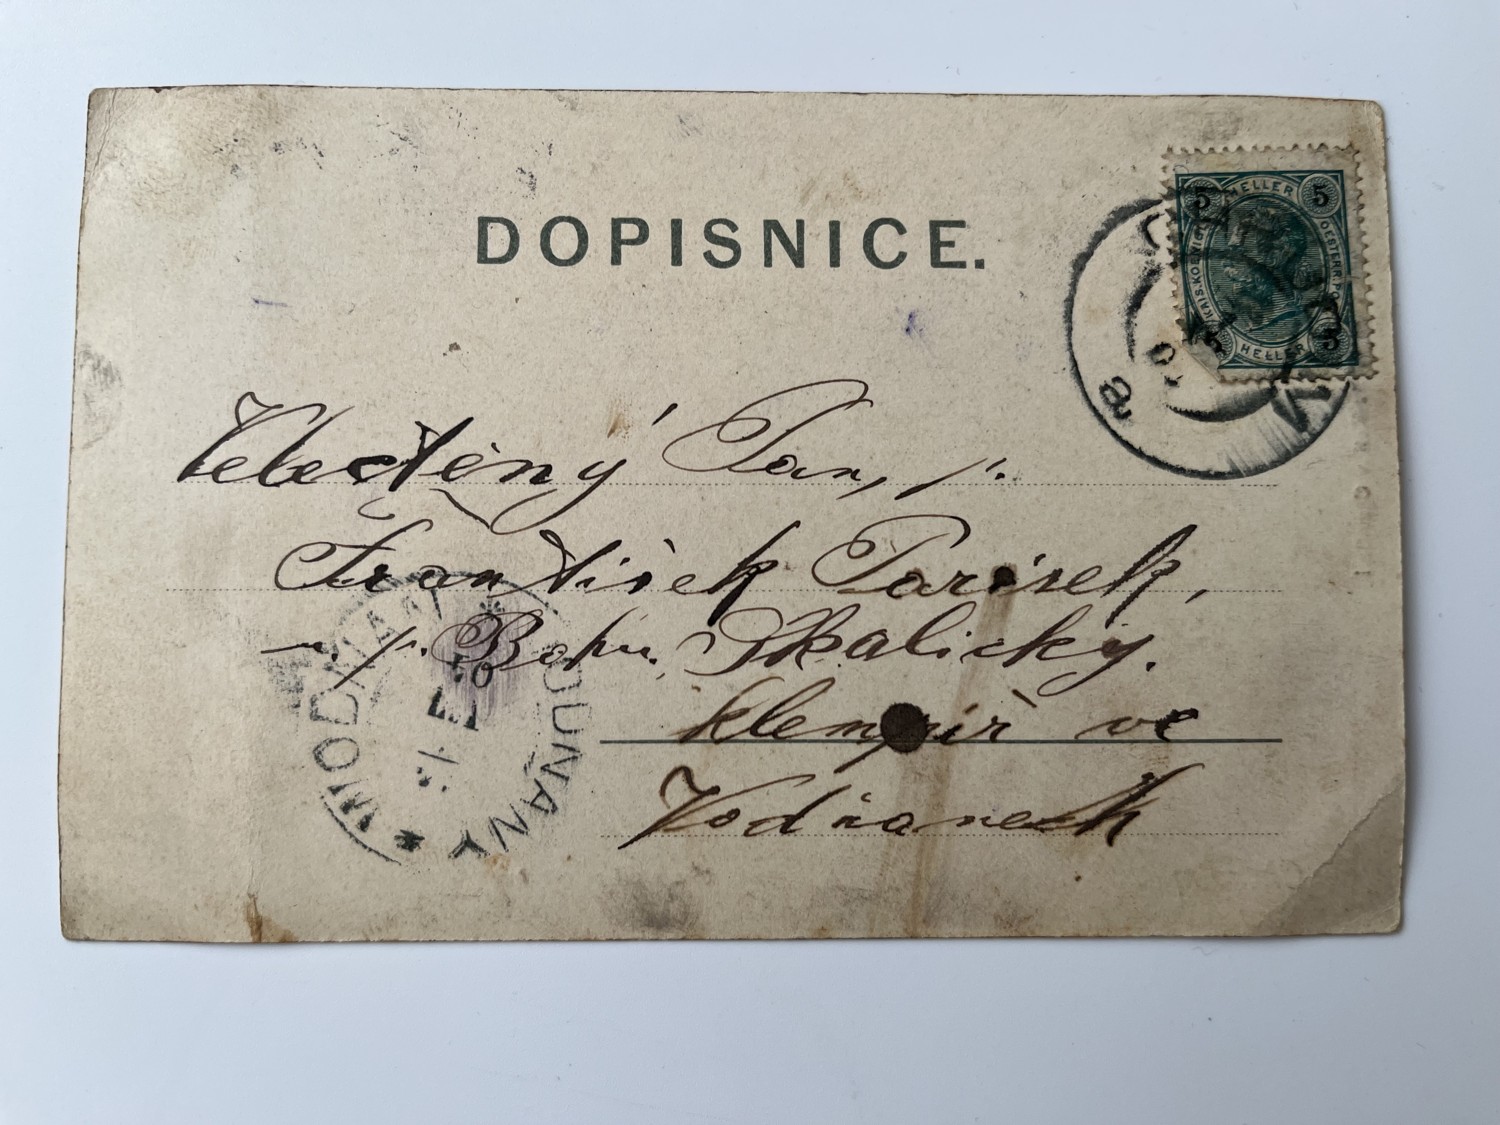 DOPISNICE.
5 HELLER 5
KAIS. KOENIGL. OESTERR. PO
HELLER 5
8
Velectěný Pan, p.
František Pařisek,
u p. Bohu. Skalický.
klempíř ve
Vodňanech
WODNIAN
VODŇANY